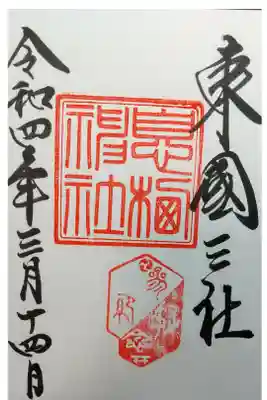 東國三社
息栖
神社
令和四年三月十四日